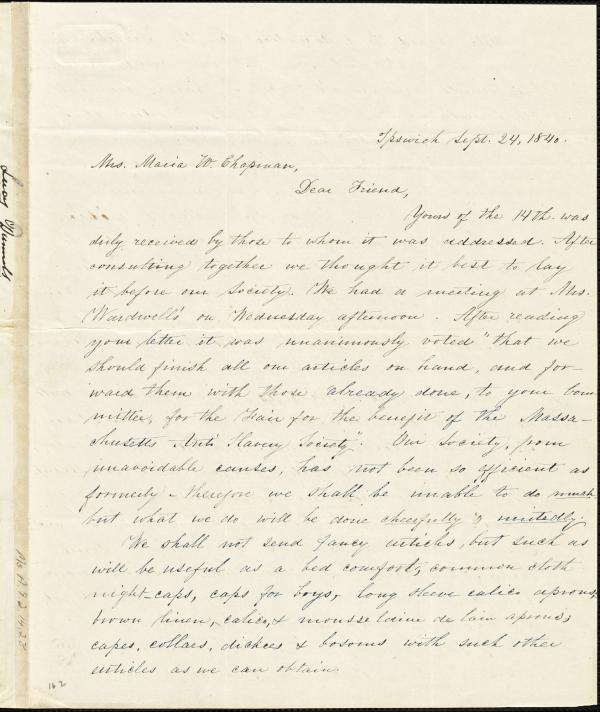 Ipswich Sept. 24, 1840.
Mrs. Maria W. Chapman,
Dear Friend,
Yours of the 14th. was
duly received by those to whom it was addressed. After
consulting together we thought it best to lay
it before our Society. We had a meeting at Mrs.
Wardwell's on Wednesday afternoon. After reading
your letter it was unanimously voted "that we
should finish all our articles on hand, and for-
ward them with those already done, to your Com
mittee, for the Fair for the benefit of the Massa-
chusetts Anti Slavery Society". Our Society, from
unavoidable causes, has not been so efficient as
formerly - therefore we shall be unable to do much
but what we do will be done cheerfully & unitedly.
We shall not send fancy articles, but such as
will be useful as a bed comfort, common cloth
night-caps, caps for boys, long sleeve calico aprons,
brown linen, calico, & mousseldine de lain aprons;
capes, collars, dickees & bosoms with such other
articles as we can obtain
162
Lucy
Ms. A.9.2.14.23